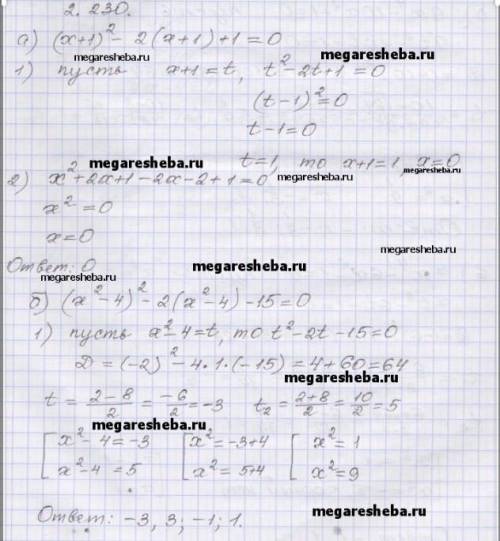 2.230.
а) (x+1)² - 2(x+1)+1=0
megaresheba.ru megaresheba.ru
1) пусть x+1=t, t²-2t+1=0
(t-1)²=0
t-1=0
megaresheba.ru t=1, то x+1=1, x=0
megaresheba.ru megaresheba.ru
2) x²+2x+1-2x-2+1=0
x²=0
x=0
megaresheba.ru
Ответ: 0 megaresheba.ru
megaresheba.ru
б) (x²-4)²-2(x²-4)-15=0
1) пусть x²-4=t, то t²-2t-15=0
D=(-2)²-4·1·(-15)=4+60=64
megaresheba.ru
t = (2-8)/2 = -6/2 = -3 t₂ = (2+8)/2 = 10/2 = 5
megaresheba.ru
[x²-4=-3 [x²=-3+4 [x²=1
x²-4=5 x²=5+4 x²=9
Ответ: -3, 3; -1; 1. megaresheba.ru